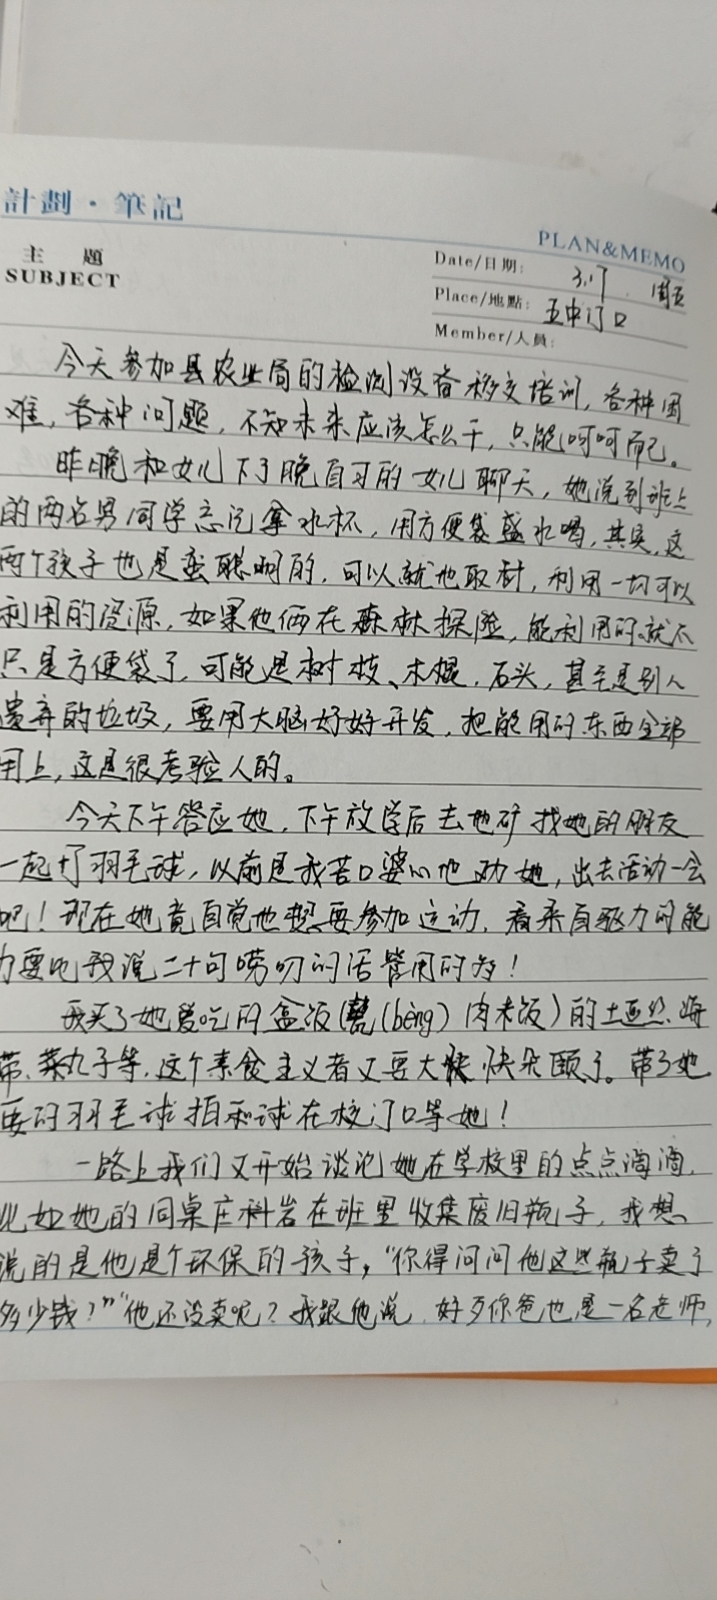 計劃·筆記
PLAN&MEMO
主 題
SUBJECT
Date/日期: 3.17 周五
Place/地點: 五中门口
Member/人員:
今天参加县农业局的检测设备移交培训,各种困
难,各种问题,不知未来应该怎么干,只能呵呵而已。
昨晚和女儿下了晚自习的女儿聊天,她说到班上
的两名男同学忘记拿水杯,用方便袋盛水喝,其实,这
两个孩子也是蛮聪明的,可以就地取材,利用一切可以
利用的资源,如果他俩在森林探险,能利用的就不
只是方便袋了,可能是树枝、木棍,石头,甚至是别人
遗弃的垃圾,要用大脑好好开发,把能用的东西全部
用上,这是很考验人的。
今天下午答应她,下午放学后去地矿找她的朋友
一起打羽毛球,以前是我苦口婆心地劝她,出去活动一会
吧!现在她竟自觉地想要参加运动,看来自驱力的能
力要比我说二十句唠叨的话管用的多!
我买了她爱吃的盒饭(甏(bèng)肉米饭)的土豆丝、海
带、菜丸子等,这个素食主义者又要大快朵颐了。带了她
要的羽毛球拍和球在校门口等她!
一路上我们又开始谈论她在学校里的点点滴滴,
比如她的同桌庄科岩在班里收集废旧瓶子,我想
说的是他是个环保的孩子,"你得问问他这些瓶子卖了
多少钱?""他还没卖呢?我跟他说,好歹你爸也是一名老师,